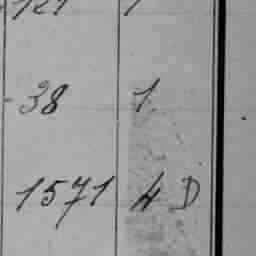 -38 1
1571 4 D